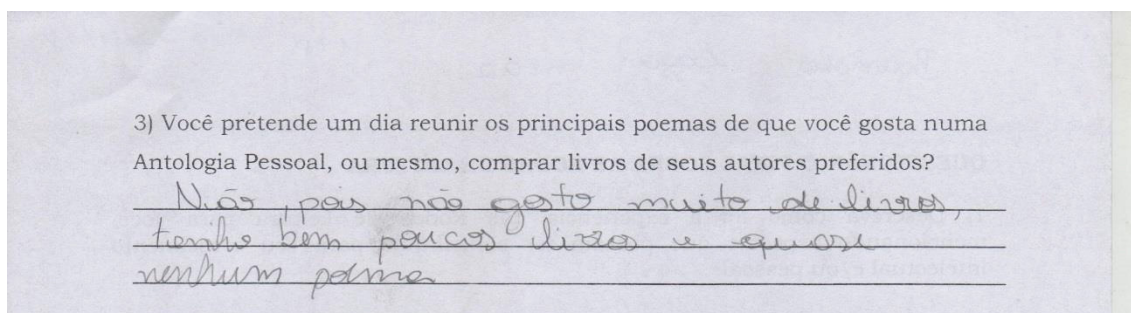 3) Você pretende um dia reunir os principais poemas de que você gosta numa
Antologia Pessoal, ou mesmo, comprar livros de seus autores preferidos?
Não, pois não gosto muito de livros,
tenho bem poucos livros e quase
nenhum poema